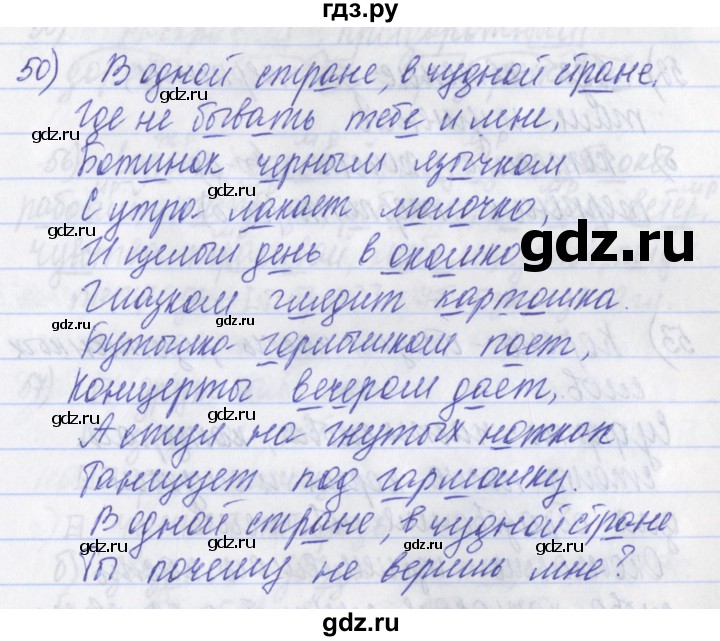 гдз.ру
50) В одной стране, в чудной стране,
Где не бывать тебе и мне,
Ботинок черным язычком
С утра лакает молочко,
И целый день в окошко
Глазком глядит картошка.
Бутылка горлышком поет,
Концерты вечером дает,
А стул на гнутых ножках
Танцует под гармошку.
В одной стране, в чудной стране
Ты почему не веришь мне?
gdz.ru
gdz.ru
gdz.ru
gdz.ru
gdz.ru
gdz.ru
gdz.ru
gdz.ru
gdz.ru
gdz.ru
gdz.ru
gdz.ru
gdz.ru
gdz.ru
gdz.ru
gdz.ru
gdz.ru